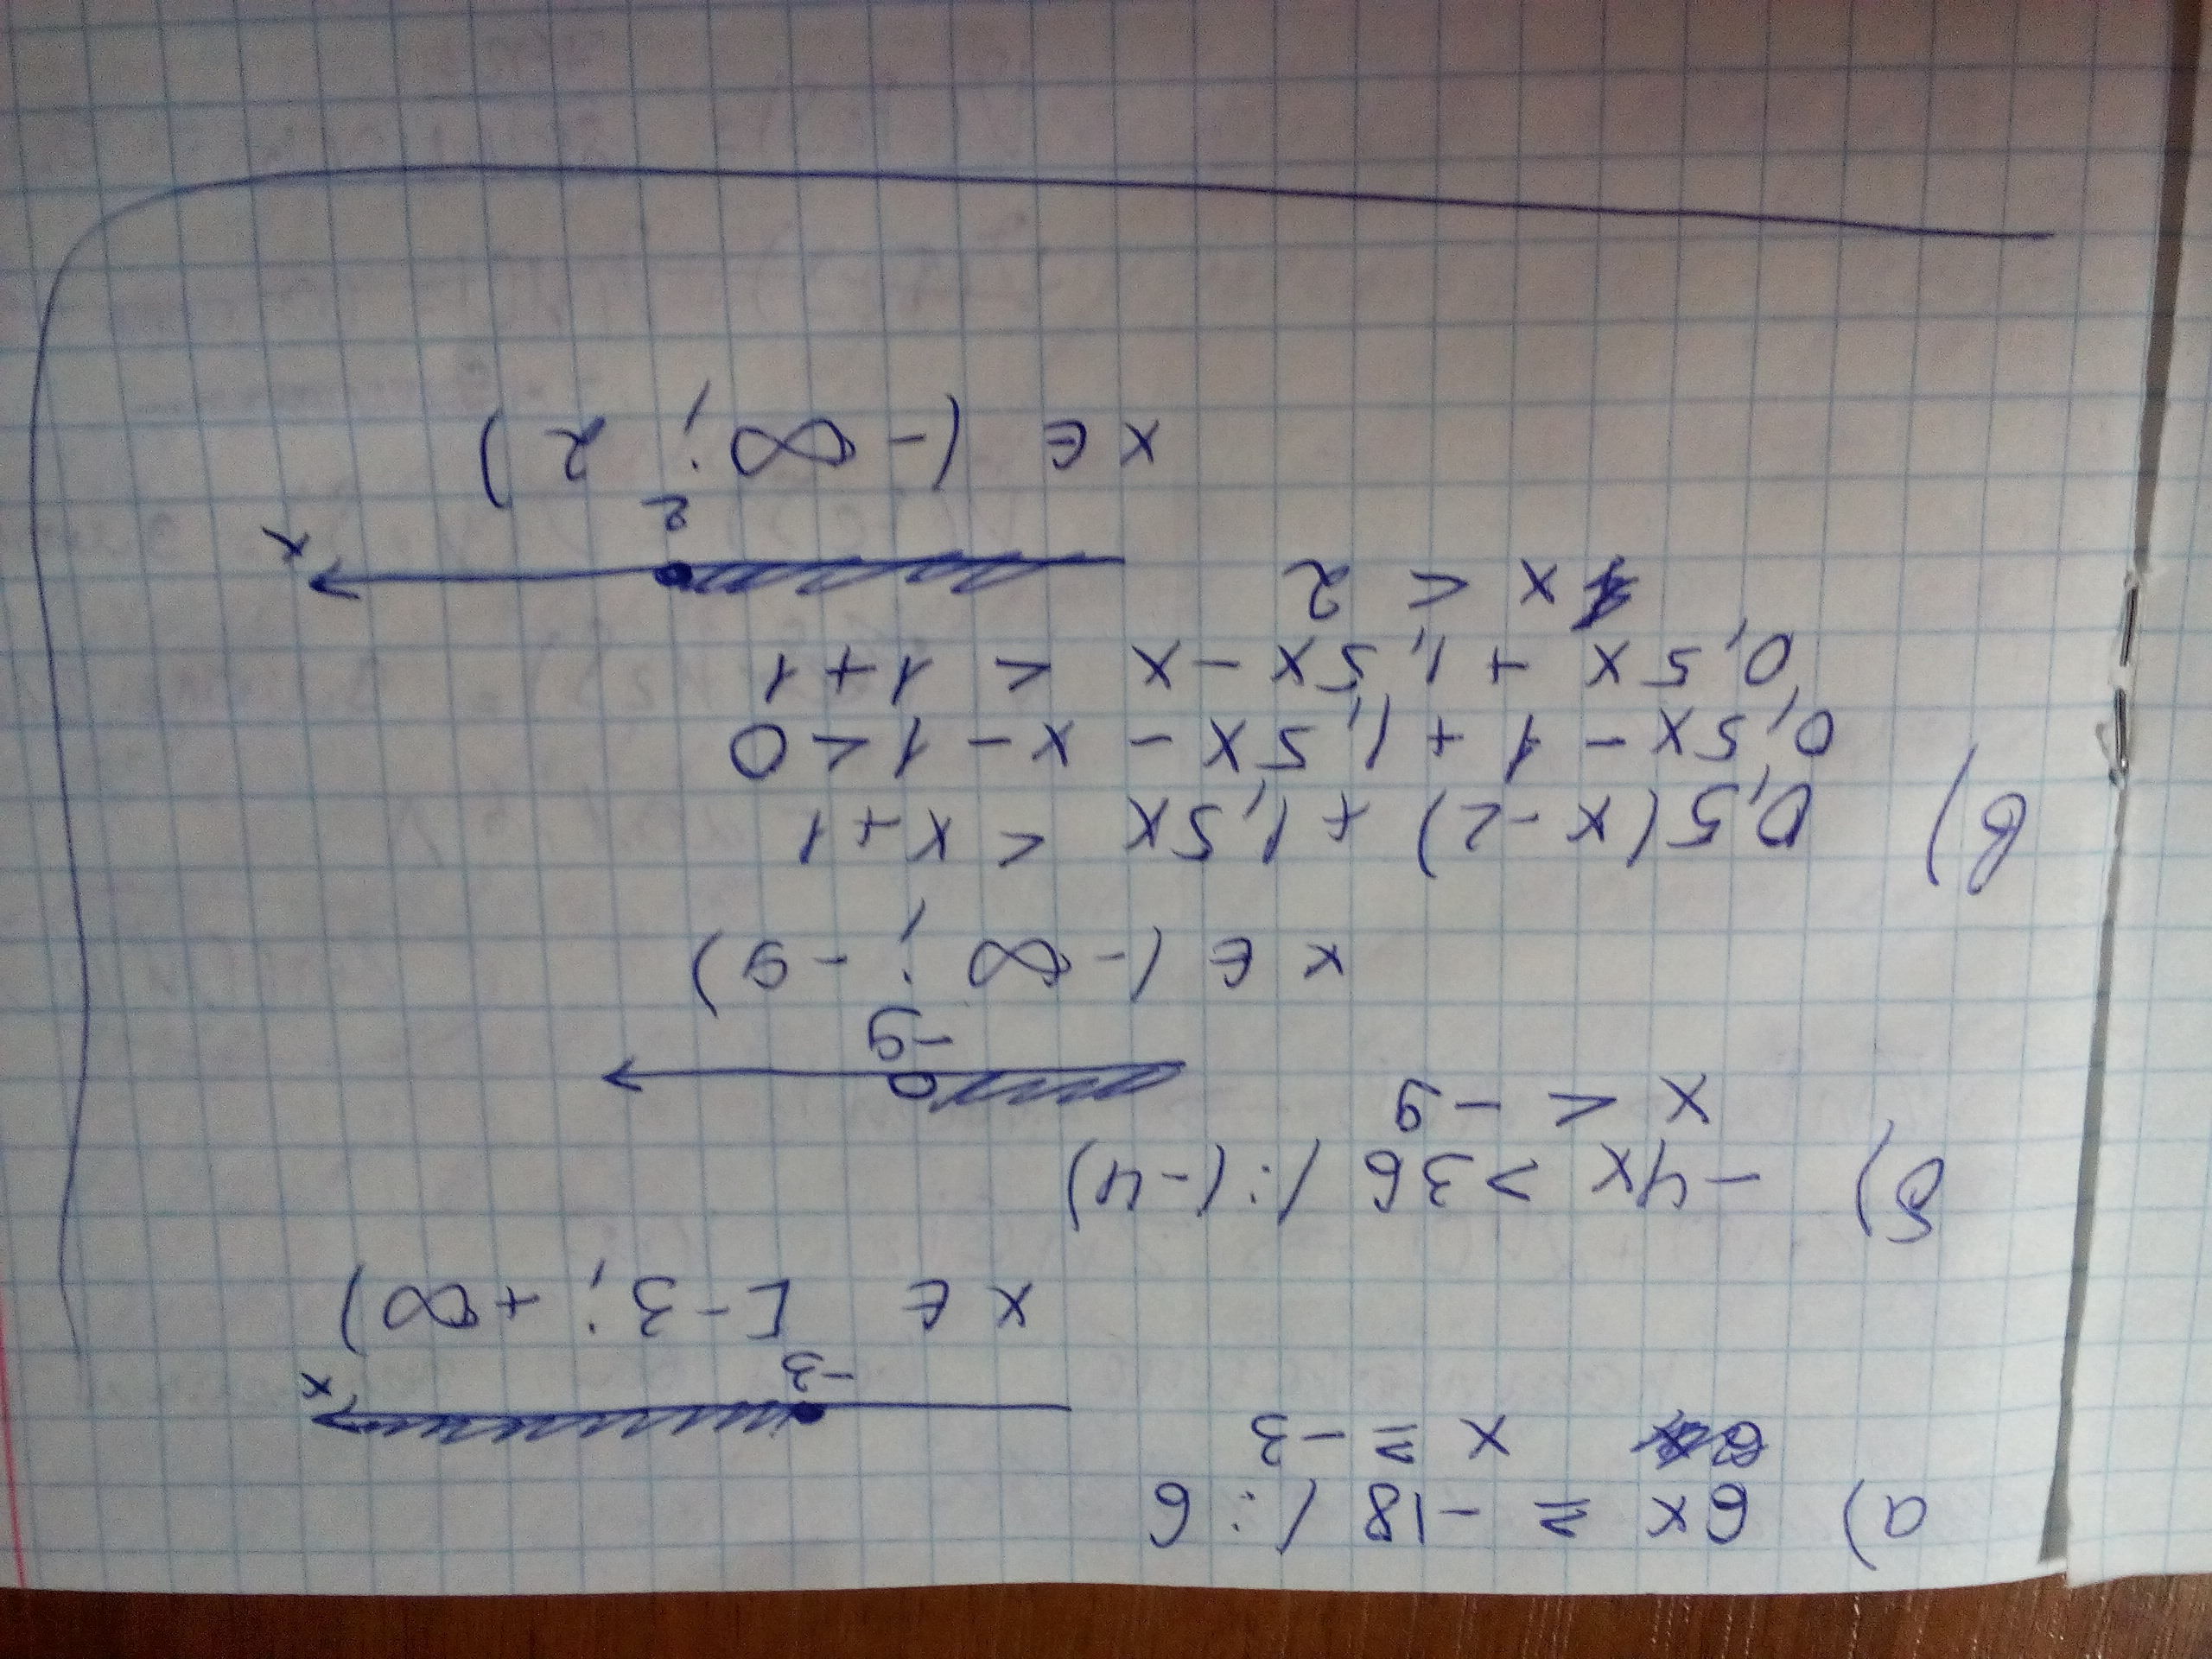 а) 6x ≥ -18 /: 6
x ≥ -3
-3 x
x ∈ [-3; +∞)
б) -4x > 36 /: (-4)
x < -9
-9
x ∈ (-∞; -9)
в) 0,5(x-2) + 1,5x < x+1
0,5x - 1 + 1,5x - x - 1 < 0
0,5x + 1,5x - x < 1+1
x < 2
2 x
x ∈ (-∞; 2)